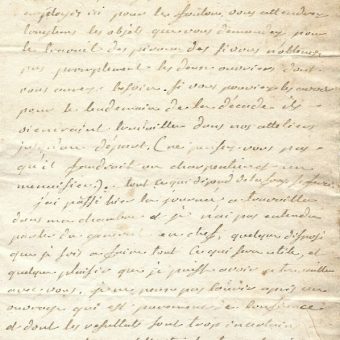 employés ici pour les poêlons, vous attendrez
longtems les objets que vous demandez pour
le travail des sieurs des si vous n'obtenez
pas promptement les deux ouvriers dont
vous avez besoin. Si vous pouviez les avoir
pour le lendemain de la décade ils
viendraient travailler dans nos atteliers
jusqu'au départ. (ne pensez vous pas
qu'il faudroit un charpentier un
menuisier). tout ce qui dépend de
j'ai passé hier la journée a travailler
dans ma chambre et je n'ai pas entendu
parler du général en chef, quelque disposé
que je sois a faire tout ce qui sera utile, et
quelque plaisir que je puisse avoir a travailler
avec vous, je ne puis pas courir après un
ouvrage qui est purement de confiance
et dont les resultats sont trop incertains